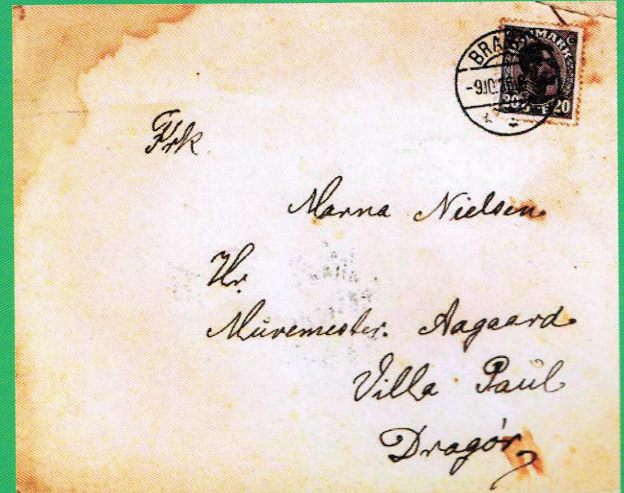 DANMARK
20 20
Frk
Marna Nielsen
Hr.
Muremester. Aagaard
Villa Paul
Dragör